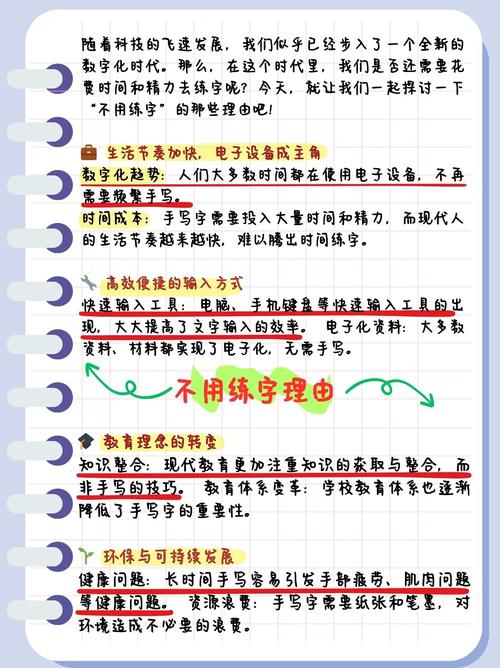 随着科技的飞速发展，我们似乎已经步入了一个全新的
数字化时代。那么，在这个时代里，我们是否还需要花
费时间和精力去练字呢？今天，就让我们一起探讨一下
“不用练字”的那些理由吧！
生活节奏加快，电子设备成主角
数字化趋势：人们大多数时间都在使用电子设备，不再
需要频繁手写。
时间成本：手写字需要投入大量时间和精力，而现代人
的生活节奏越来越快，难以腾出时间练字。
高效便捷的输入方式
快速输入工具：电脑、手机键盘等快速输入工具的出
现，大大提高了文字输入的效率。 电子化资料：大多数
资料、材料都实现了电子化，无需手写。
不用练字理由
教育理念的转变
知识整合：现代教育更加注重知识的获取与整合，而
非手写的技巧。 教育体系变革：学校教育体系也逐渐
降低了手写字的重要性。
环保与可持续发展
健康问题：长时间手写容易引发手部疲劳、肌肉问题
等健康问题。 资源浪费：手写字需要纸张和笔墨，对
环境造成不必要的浪费。